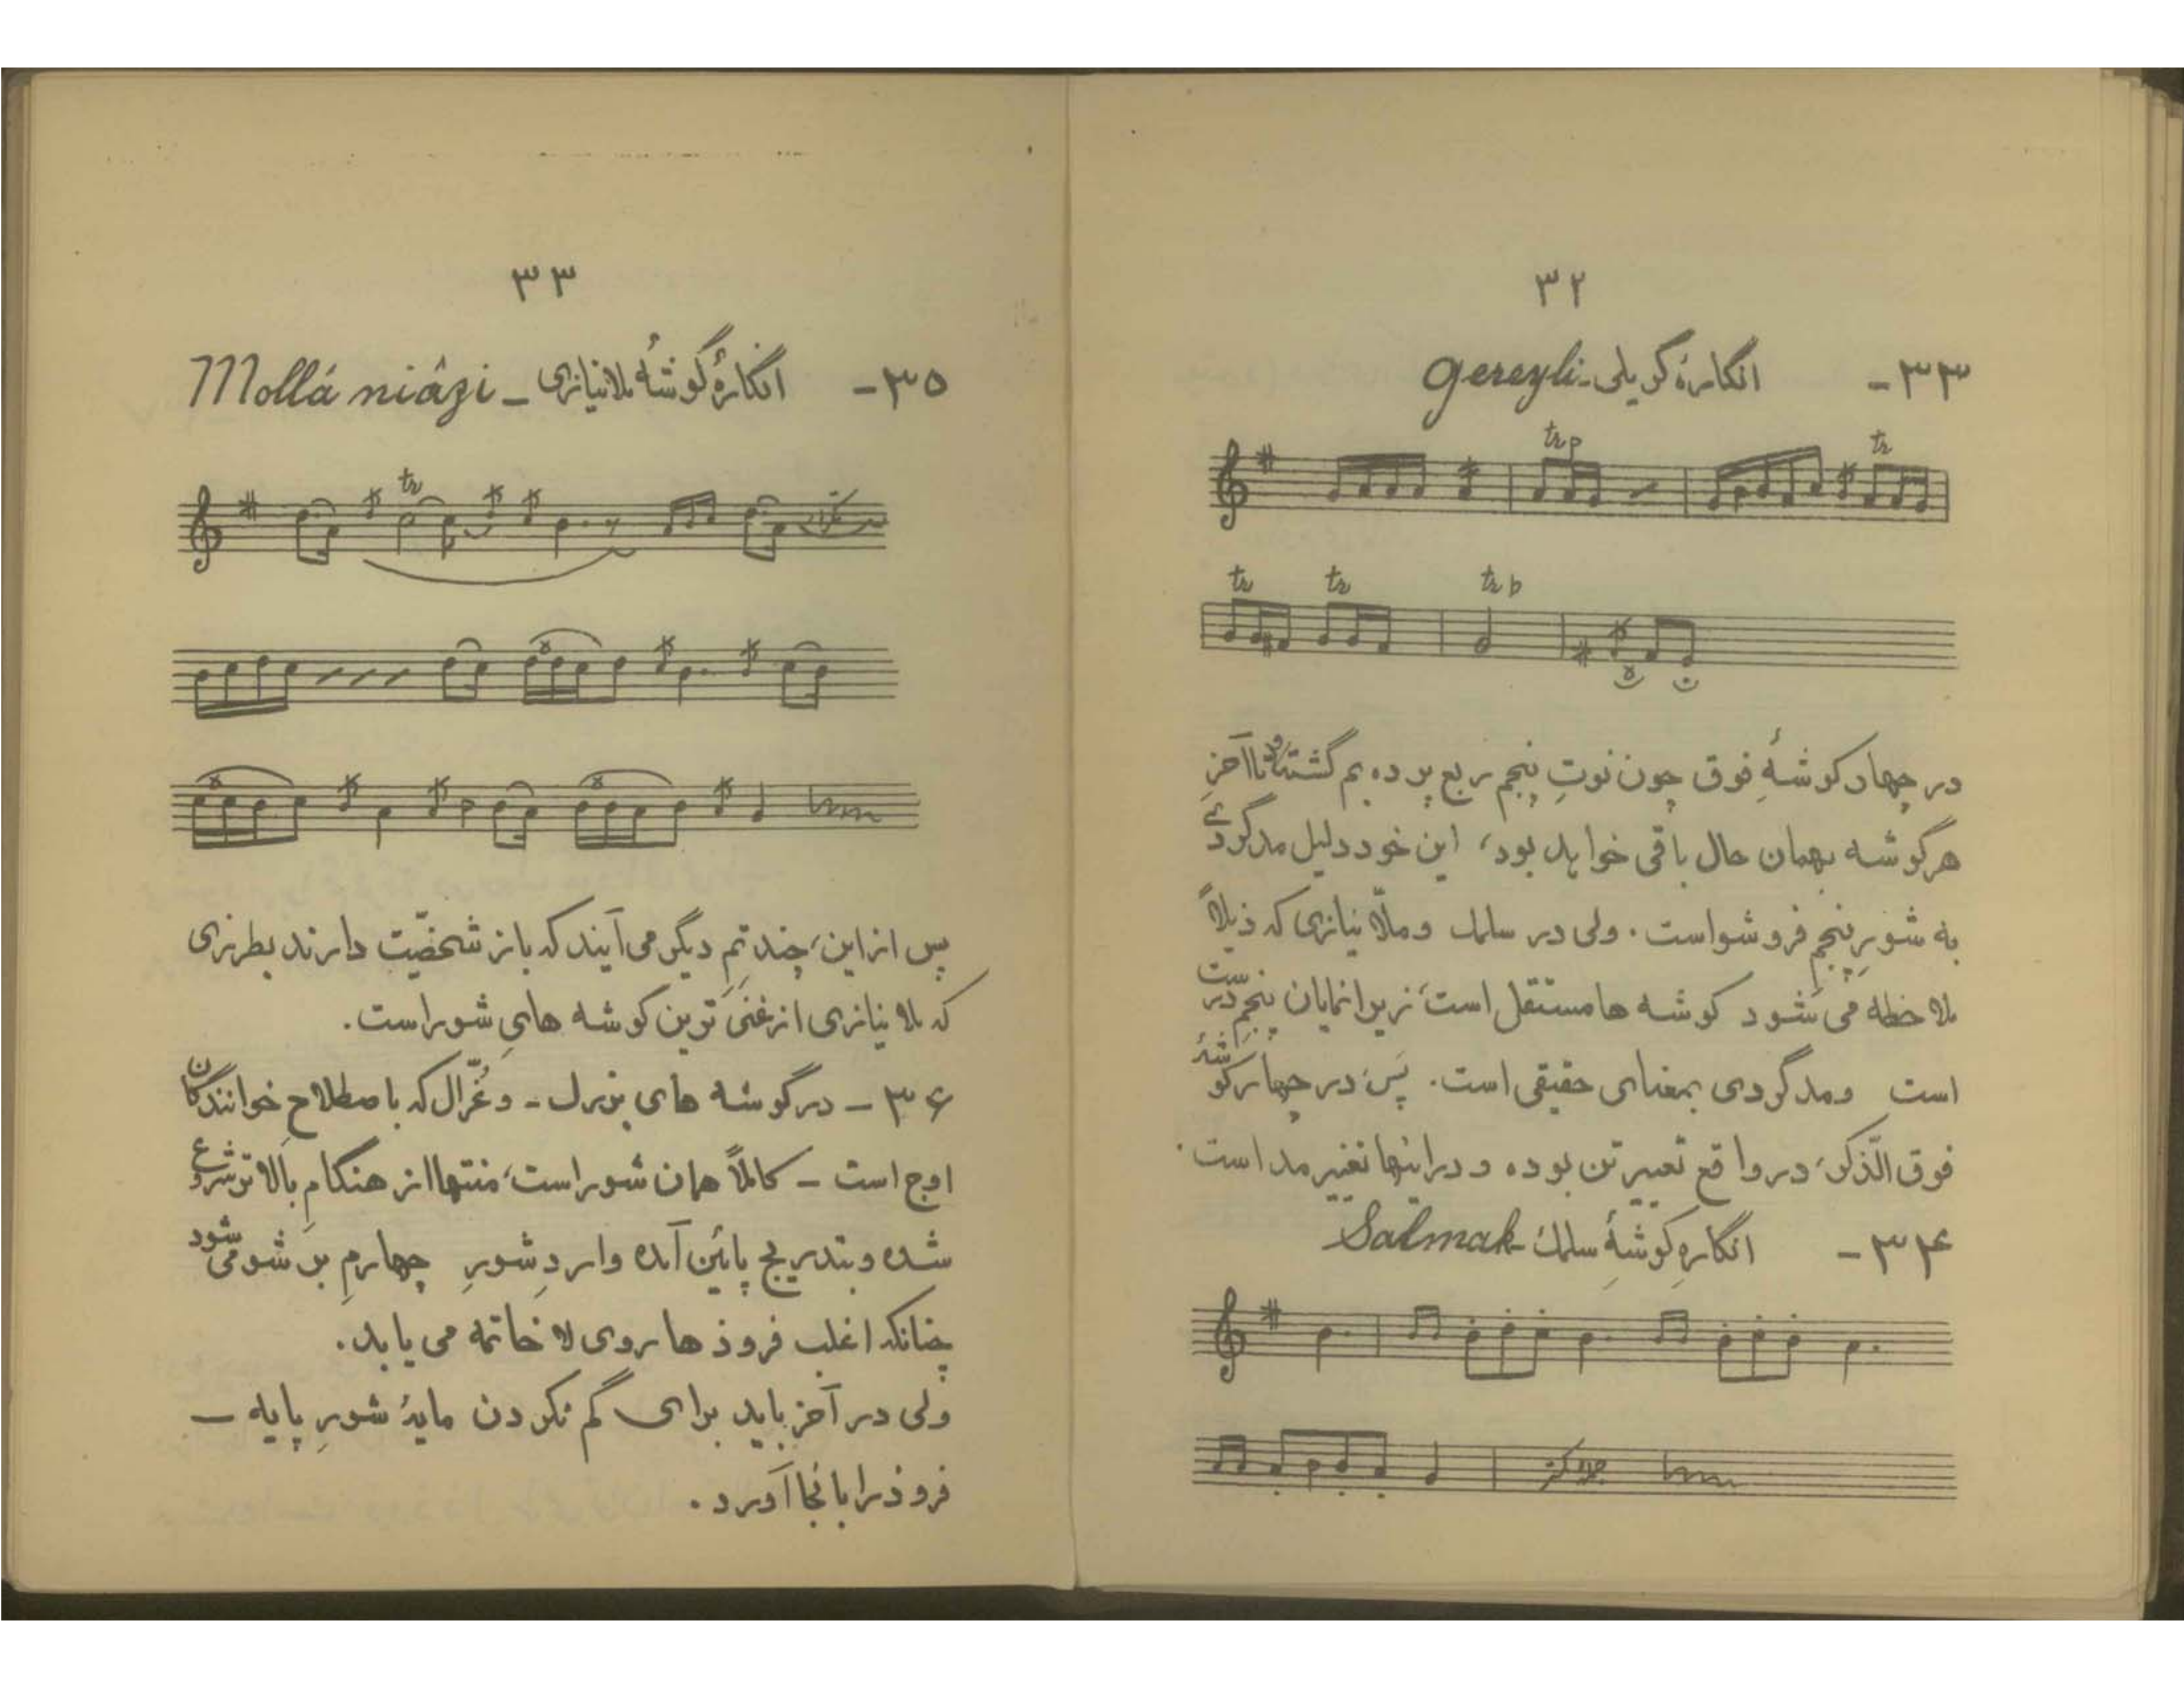 ۳۲
۳۳- انگارهٔ گریلی- gereyli
tr p tr
tr tr tr b
در چهار گوشهٔ فوق چون نوتِ پنجم ربع پرده بم گشته و تا آخرِ
هر گوشه بهمان حال باقی خواهد بود، این خود دلیل مدگردی
به شورِ پنجمِ فروشو است. ولی در سلمک و ملّا نیازی که ذیلاً
ملاحظه می شود گوشه ها مستقل است، زیرا نمایان پنجم درست
است ومدگردی بمعنای حقیقی است. پس، در چهار گوشهٔ
فوق الّذکر، در واقع تغییر تن بوده و در اینها تغییر مد است.
۳۴- انگارهِ گوشهٔ سلمک- Salmak
۳۳
۳۵- انگارهٔ گوشهٔ ملانیازی - Mollâ niâzi
tr
پس از این، چند تمِ دیگر می آیند که باز شخصیّت دارند بطرزی
که ملا نیازی از غنی ترین گوشه هایِ شور است.
۳۶ - در گوشه های بزرگ - و غزّال که باصطلاحِ خوانندگان
اوج است - کاملاً همان شور است، منتها از هنگامِ بالاتر شروع
شده و بتدریج پائین آمده واردِ شورِ چهارمِ بر شو می شود
چنانکه اغلب فرودها روی لا خاتمه می یابد.
ولی در آخر باید برای گم نکردن مایهٔ شورِ پایه -
فرود را بانجا آورد.